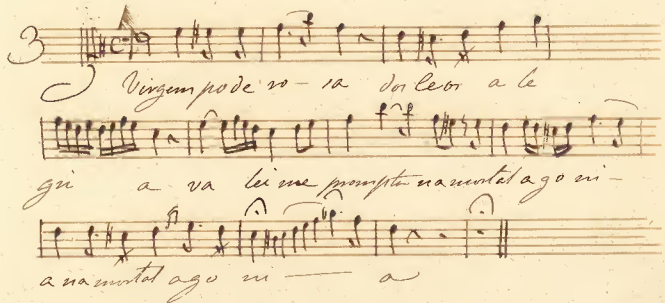 3
Virgem pode ro - sa dos Ceos a le
gri a va lei me promptu na mortal a go ni -
a na mortal a go ni — a